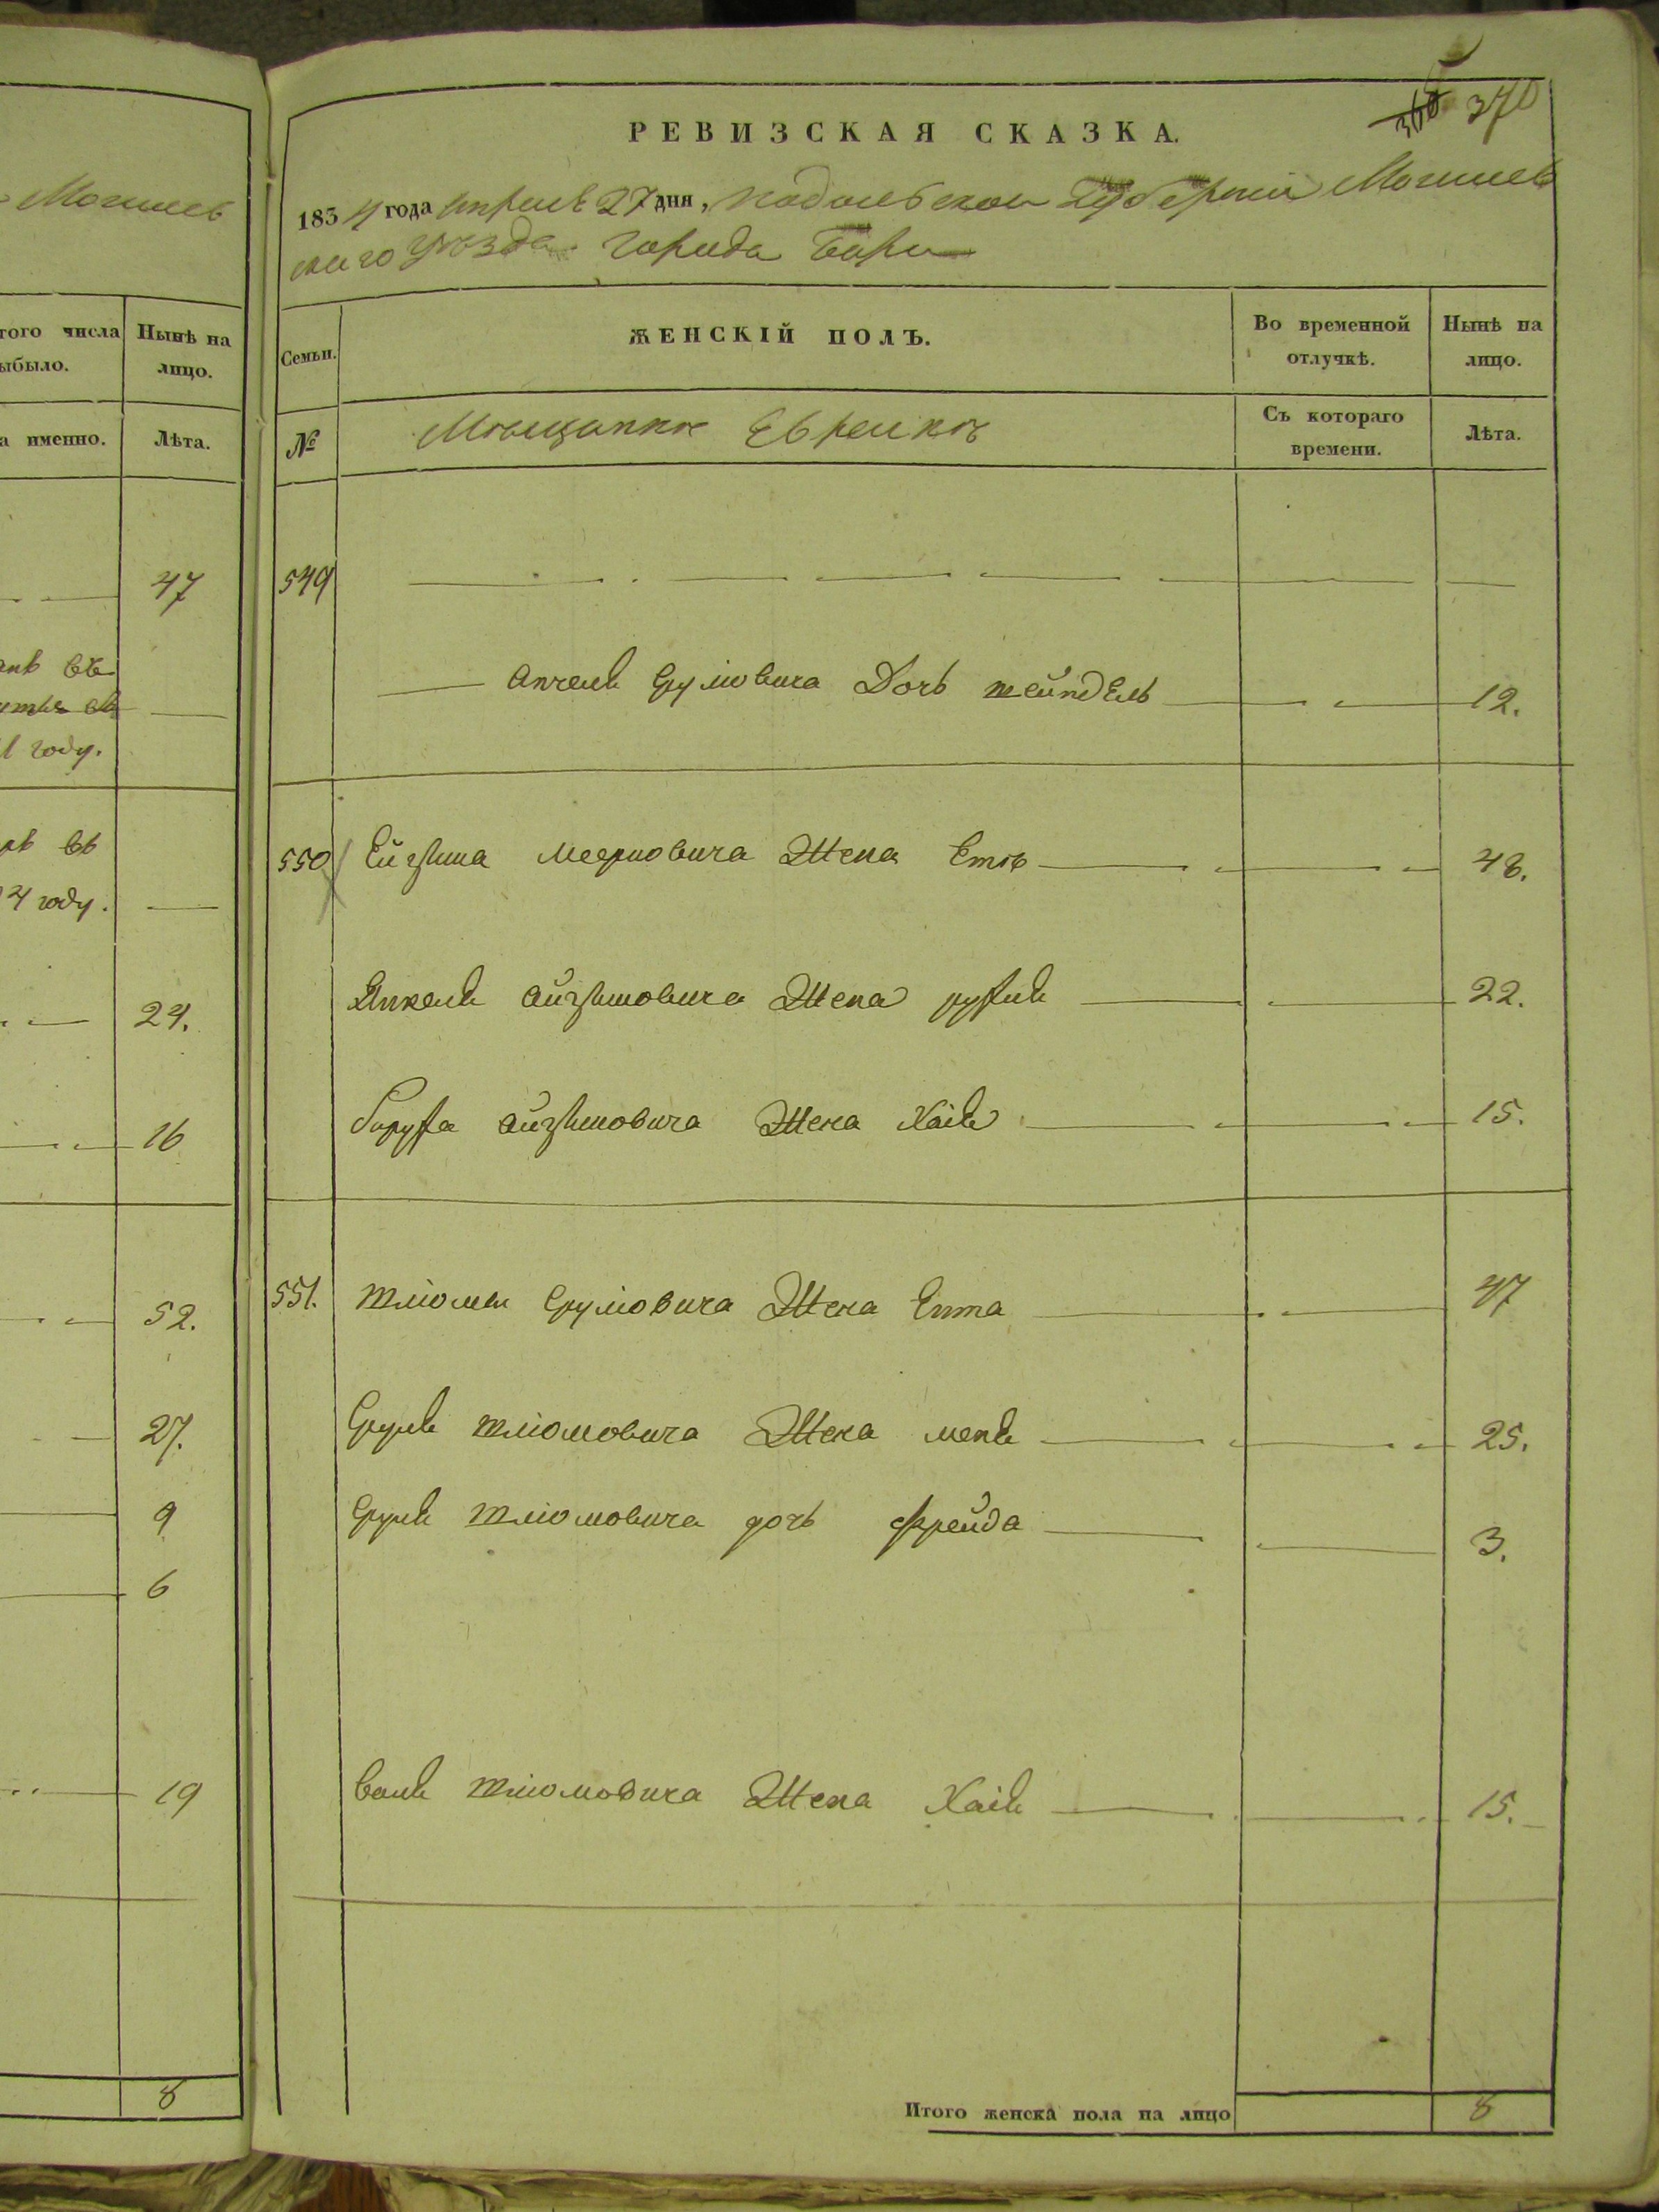 Могилев
того числа
Нынѣ на
ыбыло.
лицо.
а именно.
Лѣта.
47
въ
1 году.
въ
4 году.
24.
16
52.
27.
9
6
19
8
370
РЕВИЗСКАЯ СКАЗКА.
1834 года Апреля 27 дня, Подольской Губернии Могилев
ского уѣзда города Бара
Семьи.
ЖЕНСКІЙ ПОЛЪ.
Во временной
отлучкѣ.
Нынѣ на
лицо.
№
Мѣщанки Еврейки
Съ котораго
времени.
Лѣта.
549
Анчеля Сруліовича Дочь Шейндель 12.
550 Айзика Мееровича Жена Етя 48.
Янкеля Айзиковича Жена 22.
Боруха Айзиковича Жена Хаія 15.
551. Шліомы Сруліовича Жена Ента 47
Сруля Шліомовича Жена 25.
Сруля Шліомовича дочь Фрейда 3.
Шліомовича Жена Хаія 15.
Итого женска пола на лицо 8